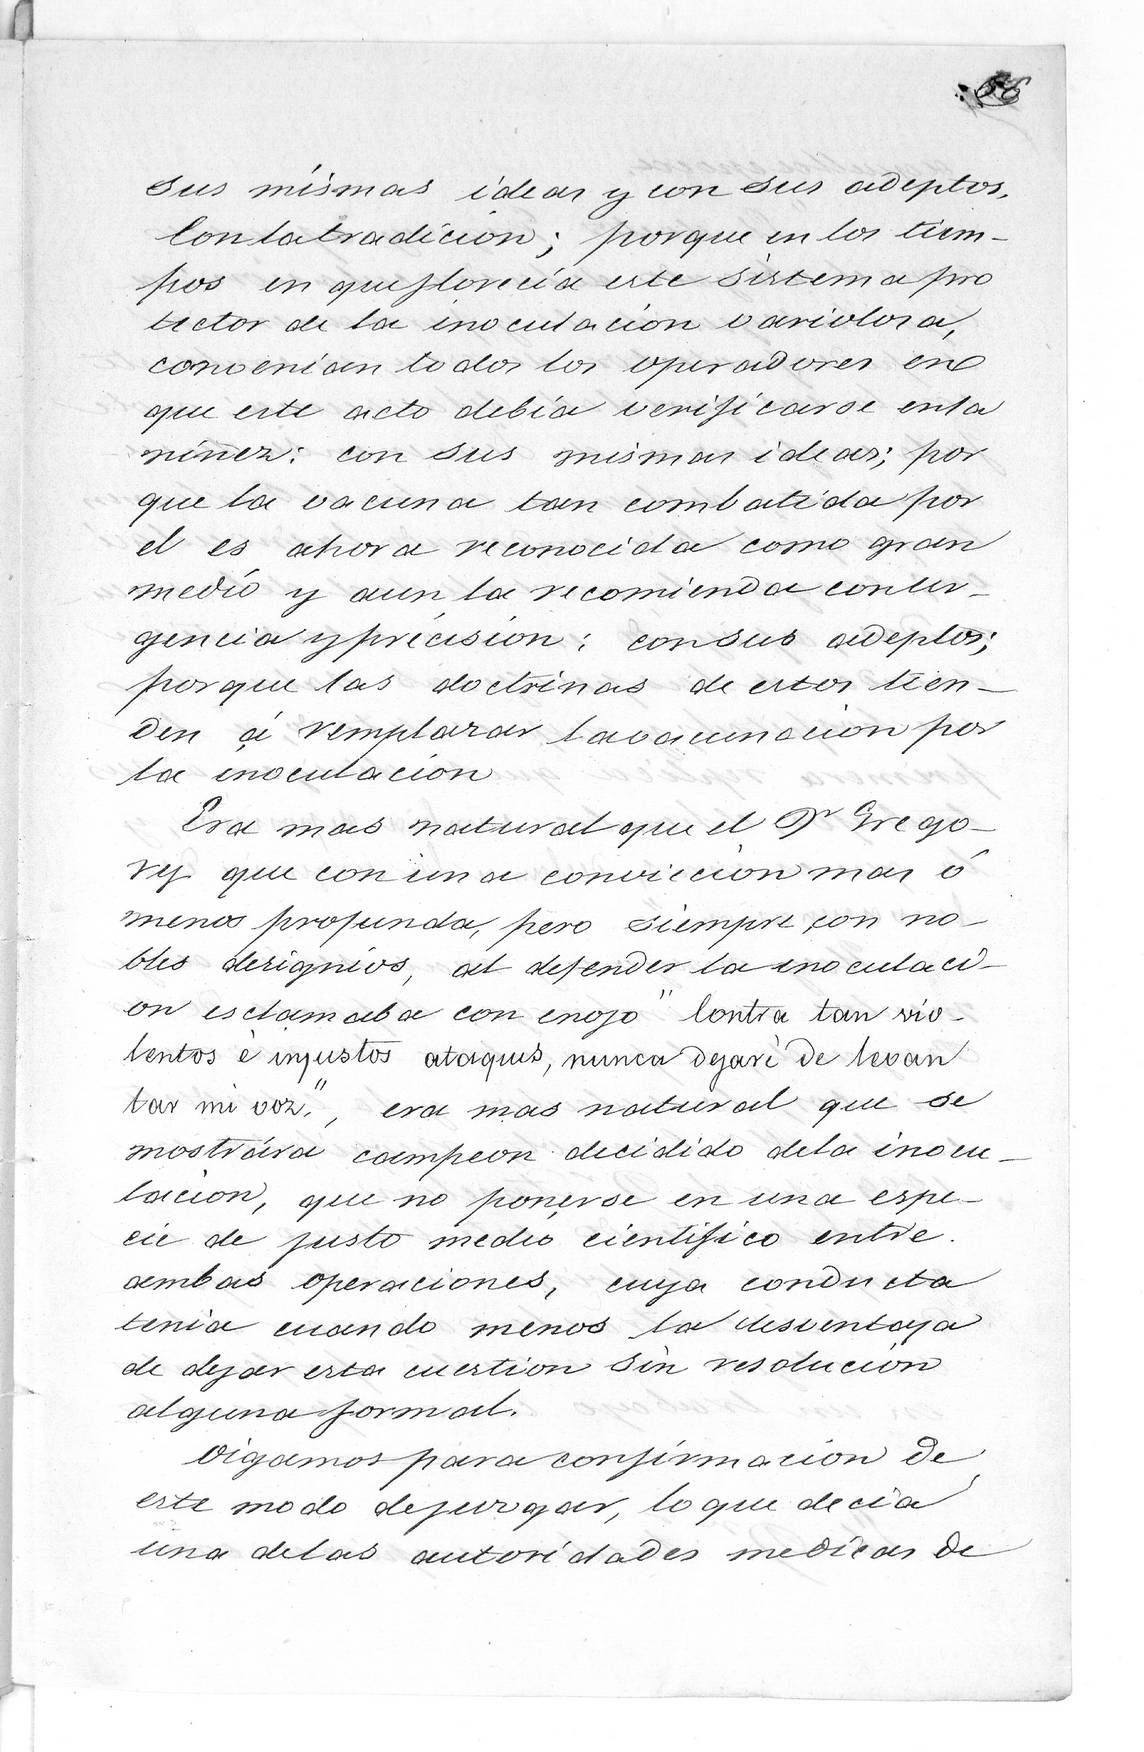 sus mismas ideas y con sus adeptos.
Con la tradicion; porque en los tiem-
pos en que florecia este sistema pro
tector de la inoculacion variolosa,
convenian todos los operadores en
que este acto debia verificarse en la
niñez: con sus mismas ideas; por
que la vacuna tan combatida por
el es ahora reconocida como gran
medio y aun la recomienda con ur-
gencia y precision: con sus adeptos;
porque las doctrinas de estos tien-
den á remplazar la vacunacion por
la inoculacion
Era mas natural que el Dr Grego-
ry que con una conviccion mas ó
menos profunda, pero siempre con no-
bles designios, al defender la inoculaci-
on esclamaba con enojo "Contra tan vio-
lentos è injustos ataques, nunca dejarè de levan
tar mi voz.", era mas natural que se
mostrára campeon decidido de la inocu-
lacion, que no ponerse en una espe-
cie de justo medio cientifico entre
ambas operaciones, cuya conducta
tenia cuando menos la desventaja
de dejar esta cuestion sin resolucion
alguna formal.
Oigamos para confirmacion de
este modo de juzgar, lo que decia
una de las autoridades medicas de